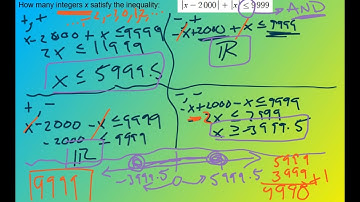 How many integers x satisfy the inequality: |x - 2000| + |x| ≤ 9999
AND
+, +
x - 2000 + x ≤ 9999
2x ≤ 11999
x ≤ 5999.5
-, +
-x + 2000 + x ≤ 9999
ℝ
+, -
x - 2000 - x ≤ 9999
-2000 ≤ 9999
ℝ
-, -
-x + 2000 - x ≤ 9999
-2x ≤ 7999
x ≥ -3999.5
-3999.5 0 5999.5
5999
3999
9998 + 1
9999